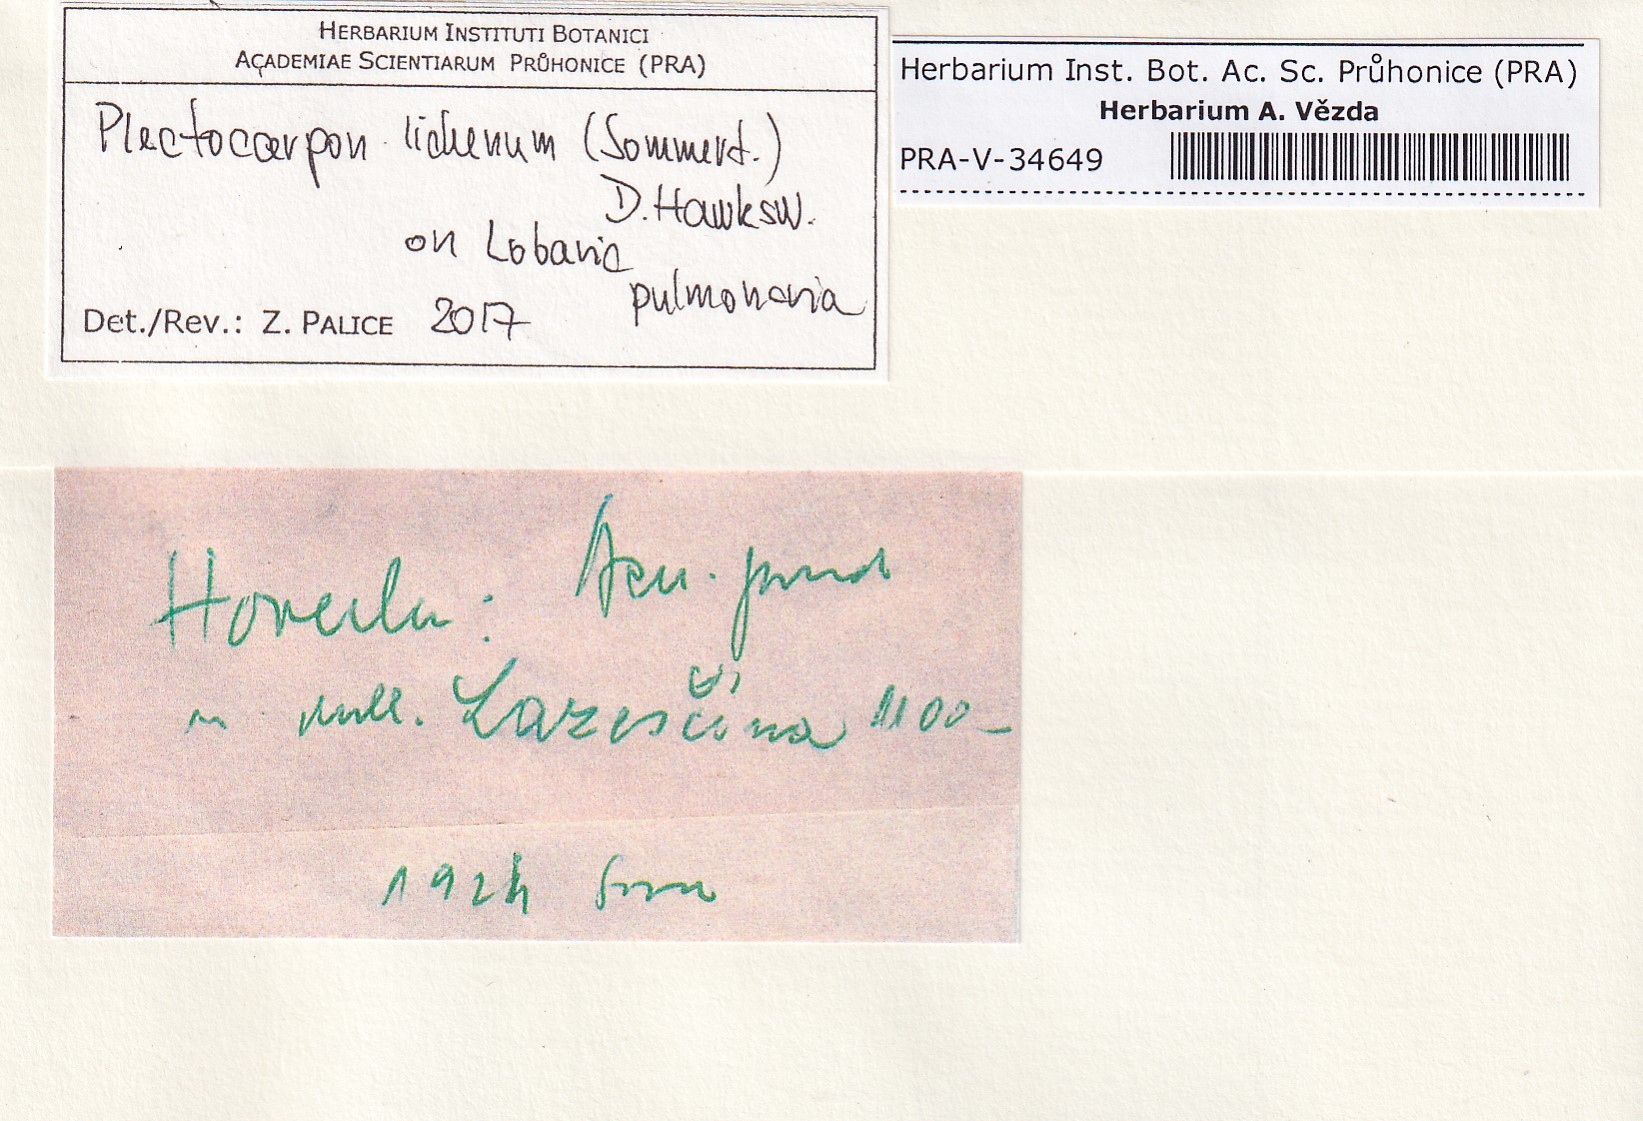 HERBARIUM INSTITUTI BOTANICI
ACADEMIAE SCIENTIARUM PRŮHONICE (PRA)
Plectocarpon lichenum (Sommerf.)
D. Hawksw.
on Lobaria
pulmonaria
Det./Rev.: Z. PALICE 2017
Herbarium Inst. Bot. Ac. Sc. Průhonice (PRA)
Herbarium A. Vězda
PRA-V-34649
Hoverla:
Lazeščina 1100
192